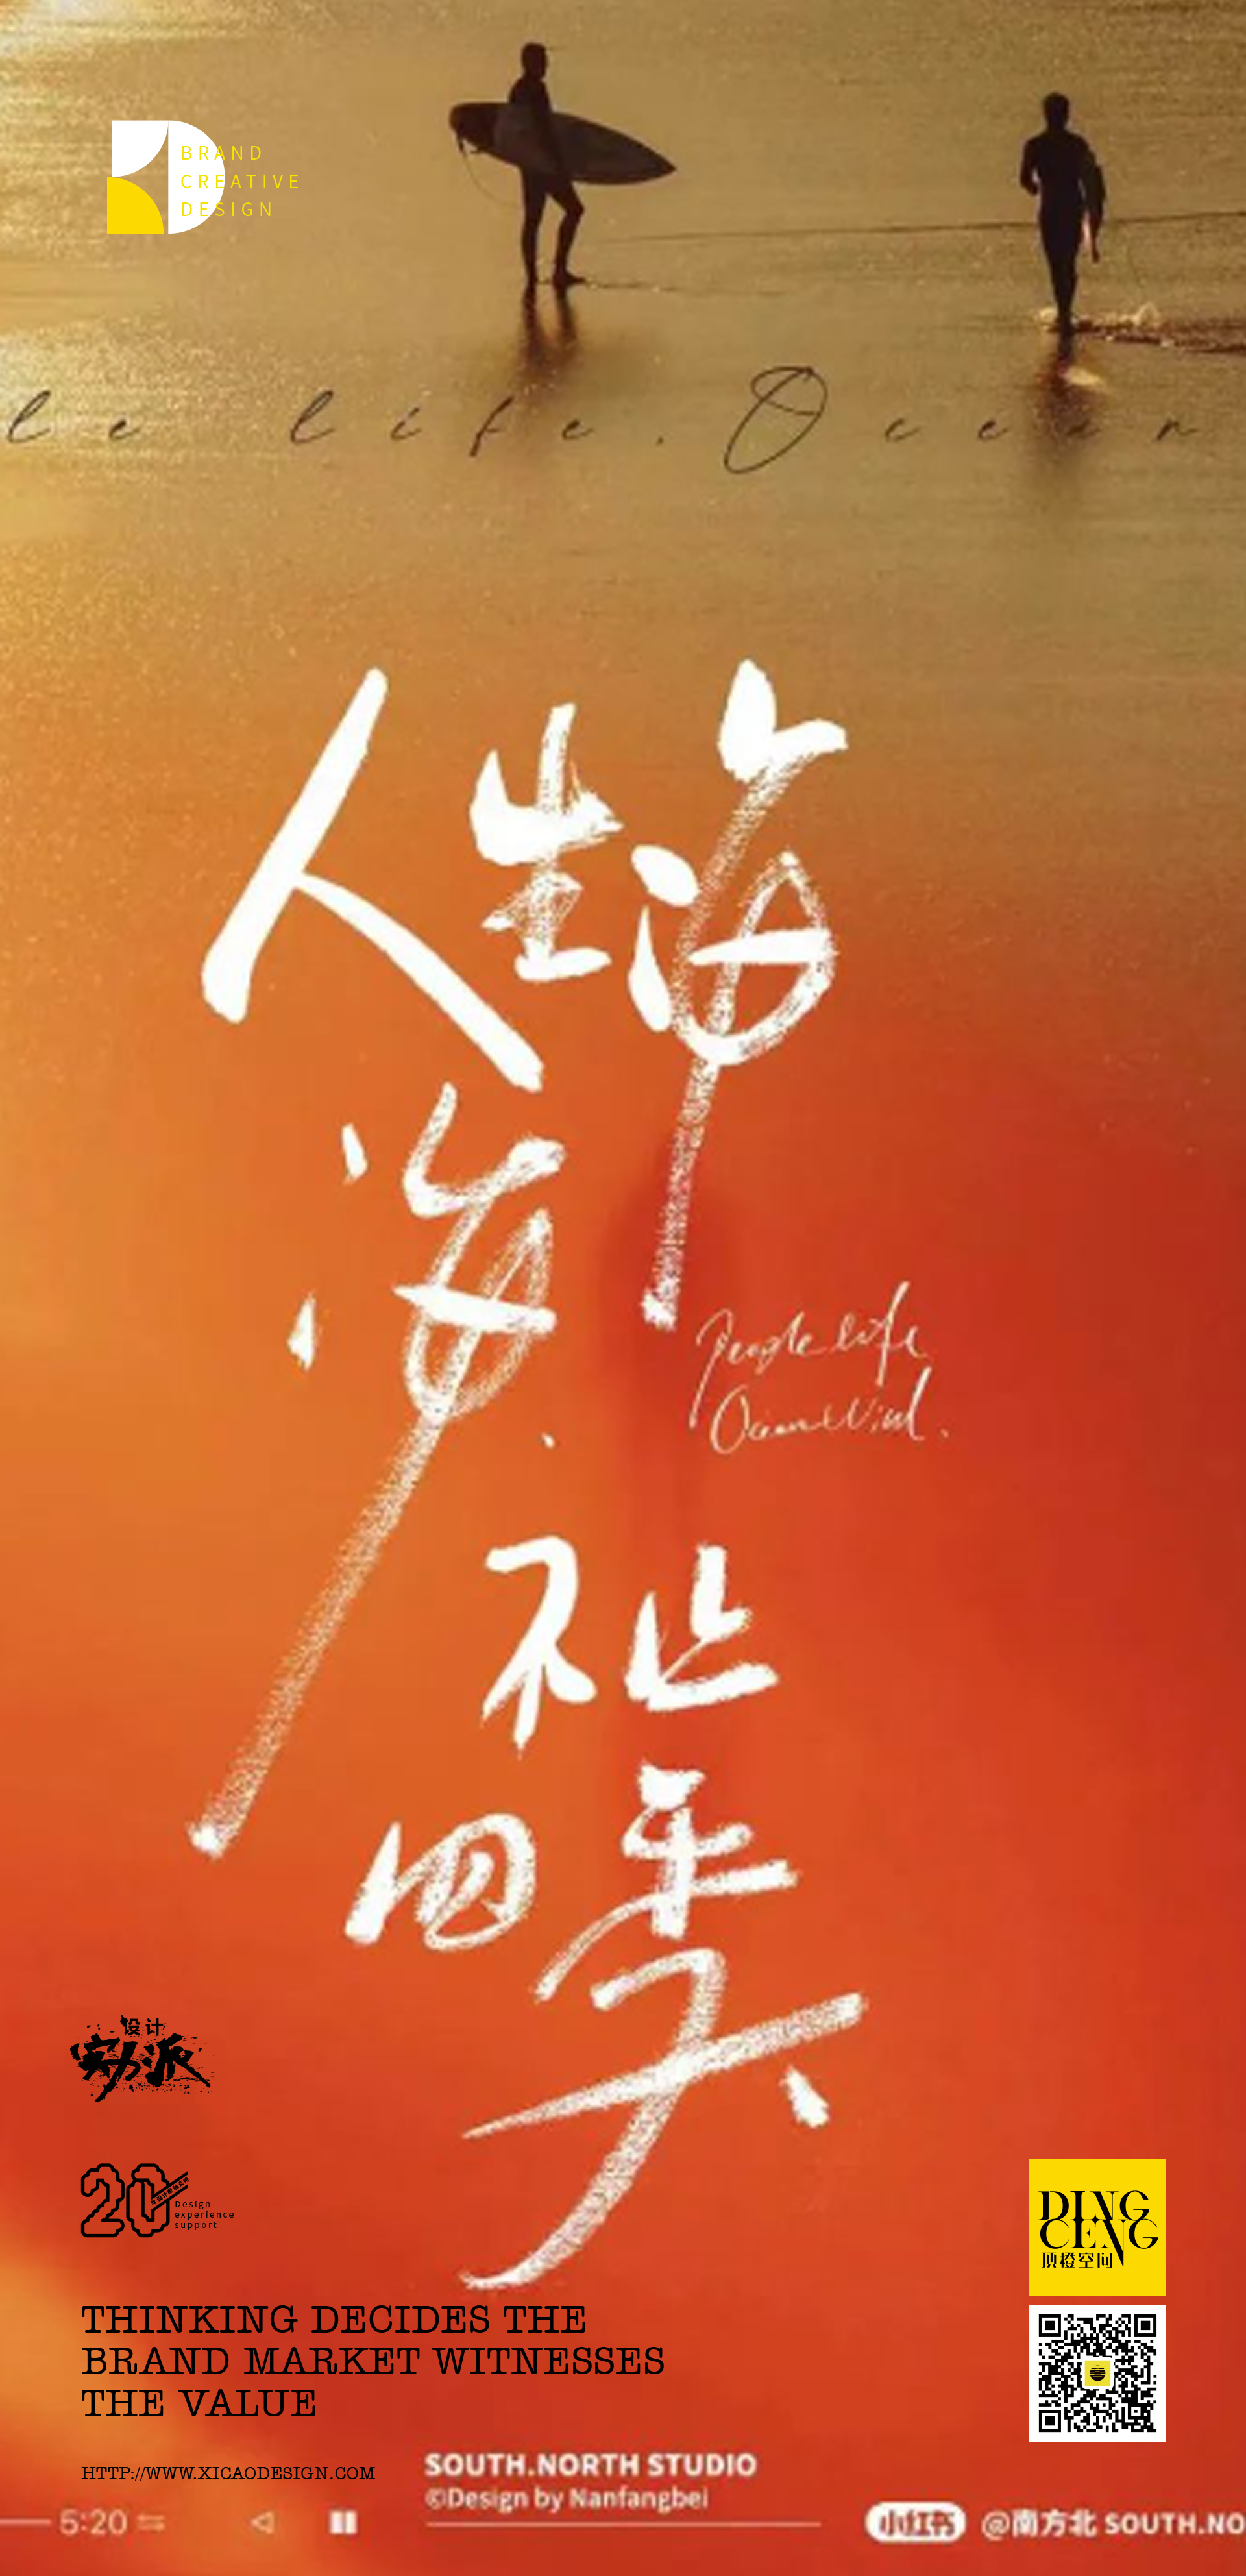 BRAND
CREATIVE
DESIGN
le life. Ocean
人生海
海
People life
Ocean Wind.
祉
四季
设计
劝派
20
Design
experience
support
DING
CENG
顶橙空间
THINKING DECIDES THE
BRAND MARKET WITNESSES
THE VALUE
HTTP://WWW.XICAODESIGN.COM
SOUTH.NORTH STUDIO
©Design by Nanfangbei
5:20
小红书 @南方北 SOUTH.NO